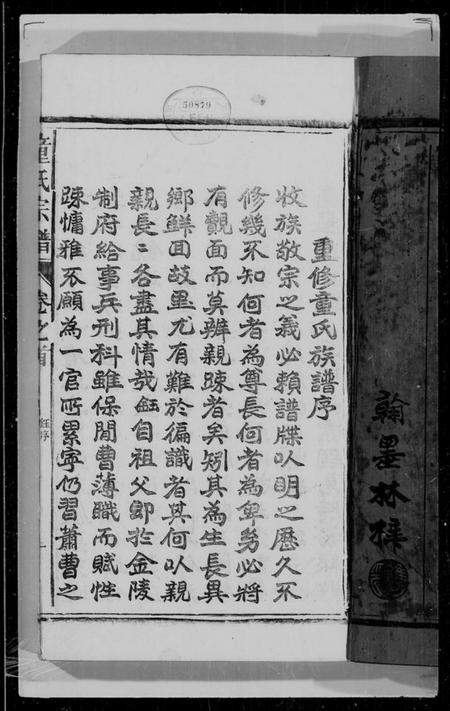 重修童氏族譜序
收族敬宗之義必賴譜牒以明之歷久不
修幾不知何者為尊長何者為卑㓜必將
有覿面而莫辨親疎者矣矧其為生長異
鄉鮮回故里尤有難於徧識者其何以親
親長〻各盡其情哉鈺自祖父卽於金陵
制府給事兵刑科雖保閒曹薄職而賦性
疎慵雅不願為一官所累寧仍習蕭曹之
童氏宗譜
卷之首
鈺序
一
翰墨林梓
50879